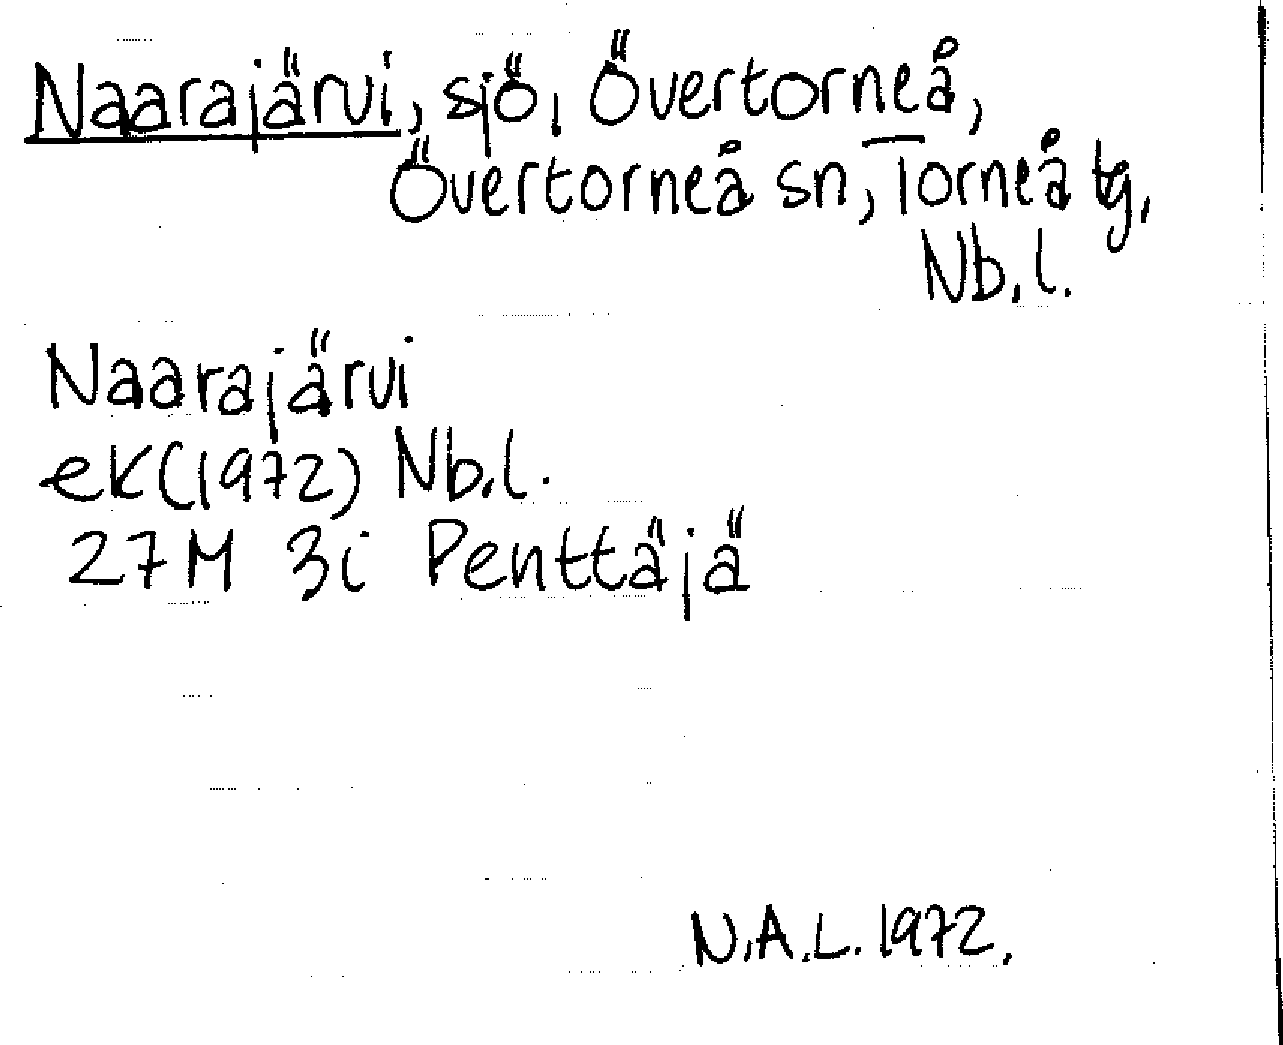 Naarajärvi, sjö, Övertorneå,
Övertorneå sn, Torneå tg,
Nb.l.
Naarajärvi
ek(1972) Nb.l.
27M 3i Penttäjä
N.A.L. 1972.